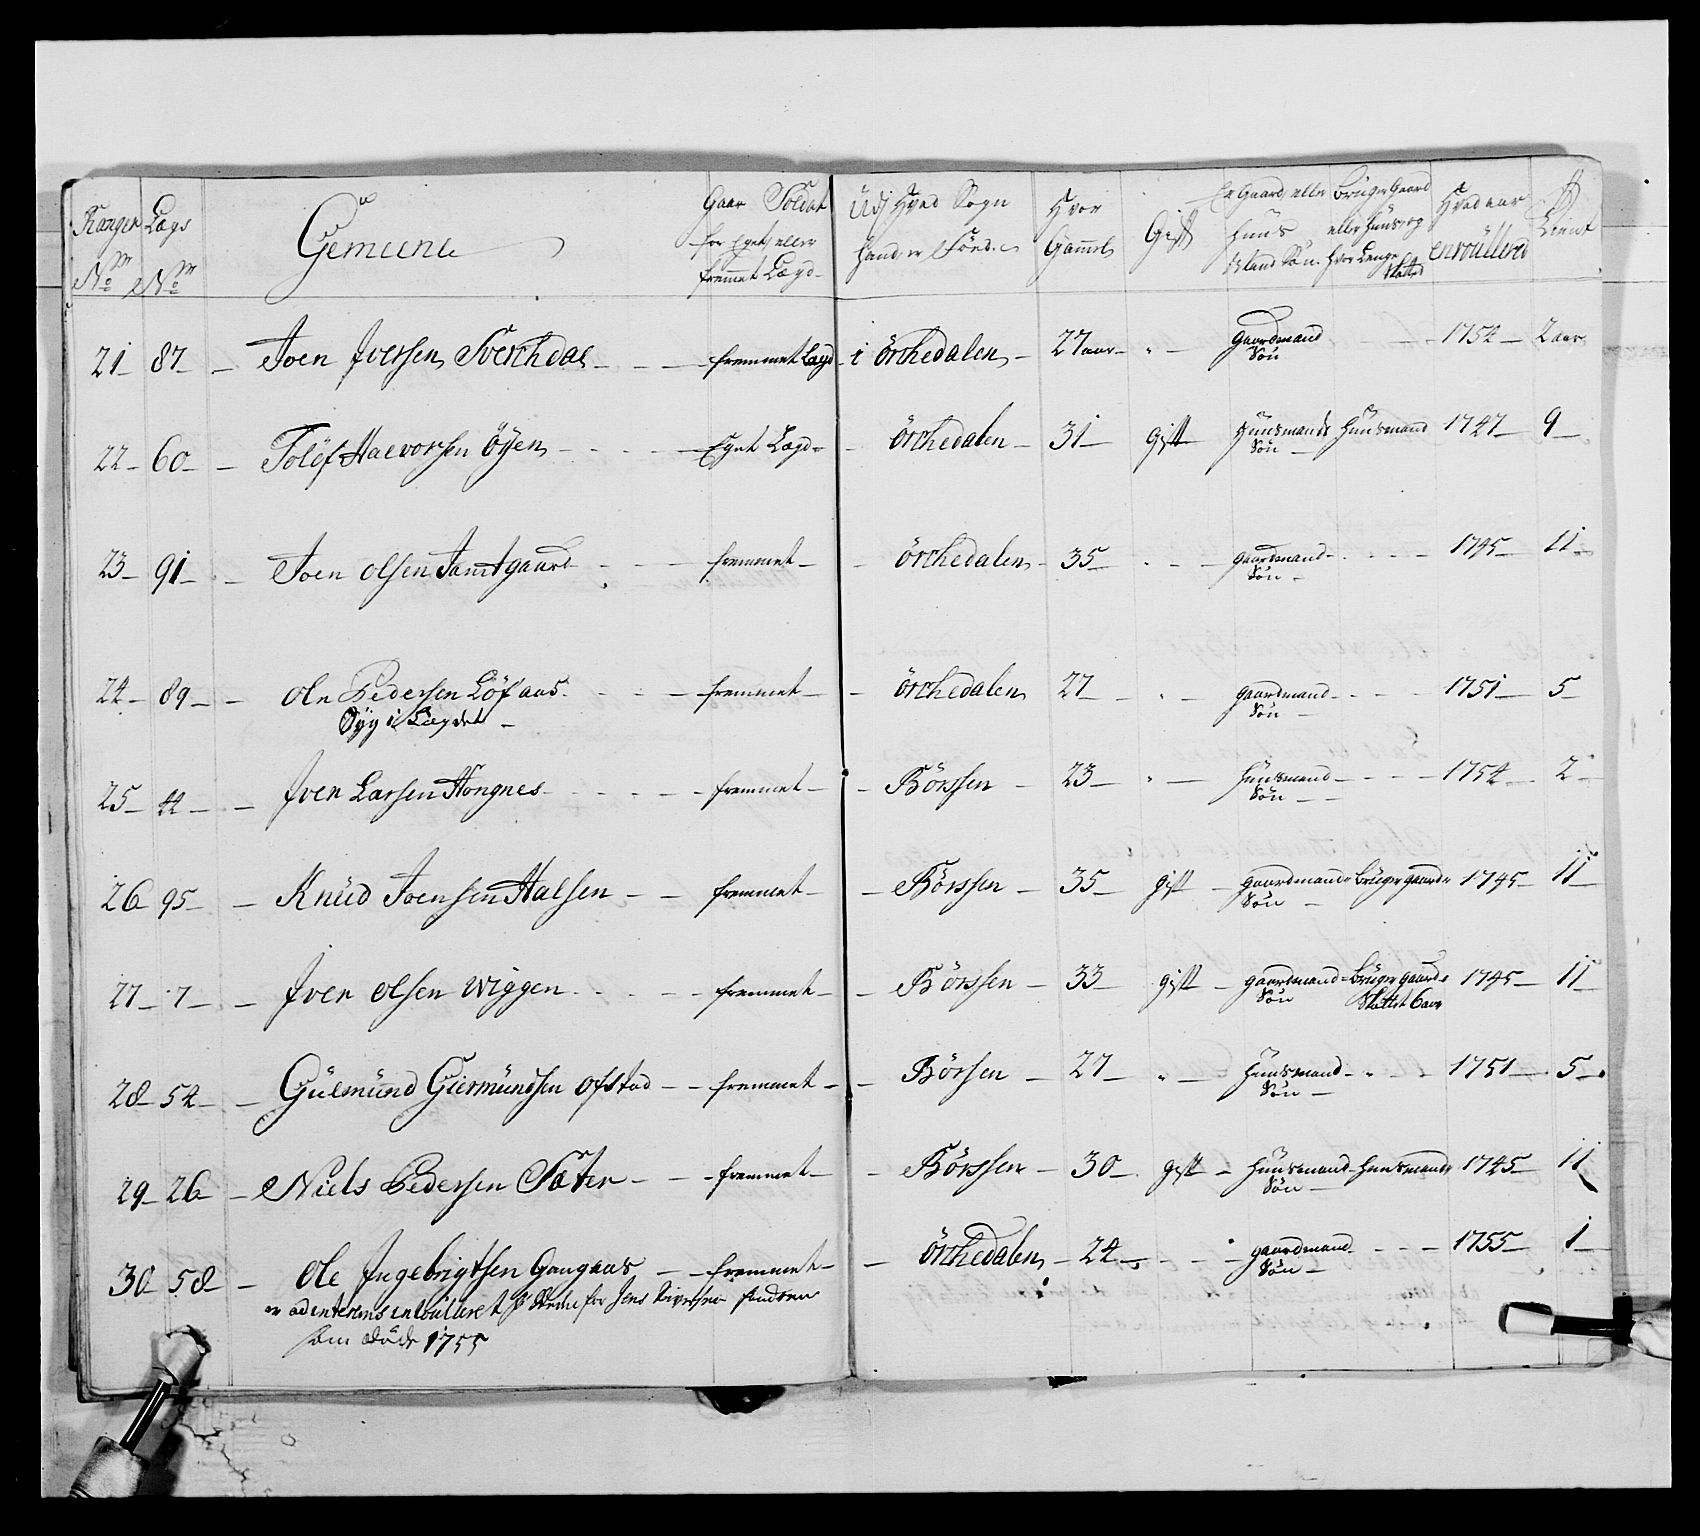 Ranger N.o Lægs N.o Gemeene Gaar Soldat for Eget eller fremmet Lægd Udj Hvad Sogn hand er födt Hvor Gammel Gift Er Gaard eller huus Mands Sön Bruger Gaard eller huus og hvor Længe skatted Hvad aar enroullered Tient
21 87 Joen Jversen Sverchdal fremmet Lægd i örchedalen 27 aar gaardmand Sön 1754 2 aar
22 60 Tolöf Halvorsen öyen Eget Lægd örchedalen 31 gift Huusmands Sön Huusmand 1747 9
23 91 Joen olsen Jamtgaard fremmet örchedalen 35 gaardmand Sön 1745 11
24 89 ole Pedersen Löfaas fremmet örchedalen 27 gaardmand Sön 1751 5
Syg i Lægdet
25 44 Jver Larsen Hongnes fremmet Börssen 23 huusmand Sön 1754 2
26 95 Knüd Joensen Halsen fremmet Börssen 35 gift gaardmands Sön brüger gaard 1745 11
27 7 Jver olsen wiggen fremmet Börssen 33 gift gaardmand Sön brüger gaard skattet 6 aar 1745 11
28 54 Gülmünd Giermündsen ofstad fremmet Börsen 27 huusmand Sön 1751 5
29 26 Niels Pedersen Sæter fremmet Börssen 30 gift huusmand Sön huusmand 1745 11
30 58 Ole Jngebrigtsen Gangaas fremmet örchedalen 24 gaardmand Sön 1755 1
er ad interims enroulleret for Jens
som döde 1755